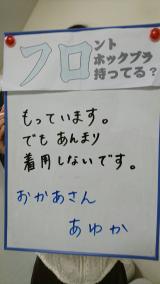 フロント
ホックブラ
持ってる?
もっています。
でも あんまり
着用しないです。
おかあさん
あゆか